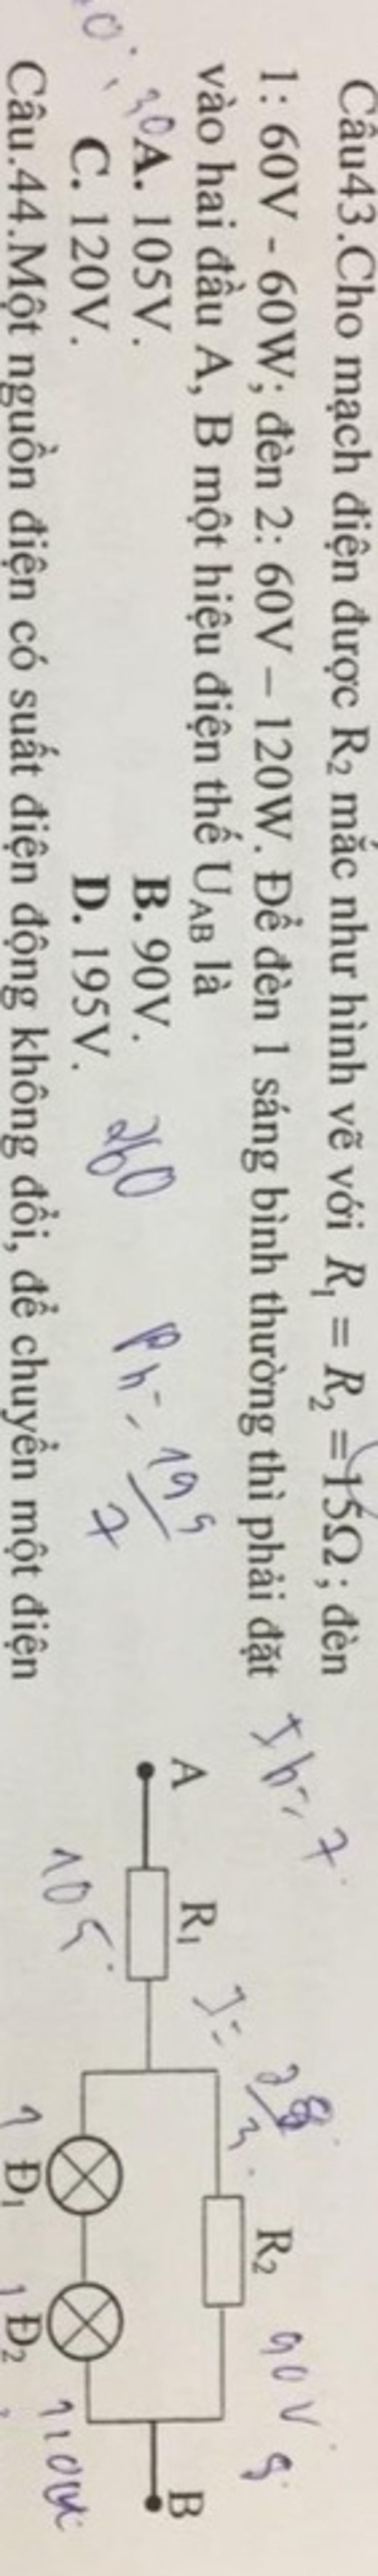 Câu43.Cho mạch điện được R₂ mắc như hình vẽ với R₁ = R₂ = 15Ω; đèn
1: 60V - 60W; đèn 2: 60V – 120W. Để đèn 1 sáng bình thường thì phải đặt
vào hai đầu A, B một hiệu điện thế U_AB là
A. 105V.
B. 90V.
C. 120V.
D. 195V.
260
195
7
A
R₁
R₂
Đ₁
Đ₂
B
105
90V
1
1
Câu.44.Một nguồn điện có suất điện động không đổi, để chuyển một điện